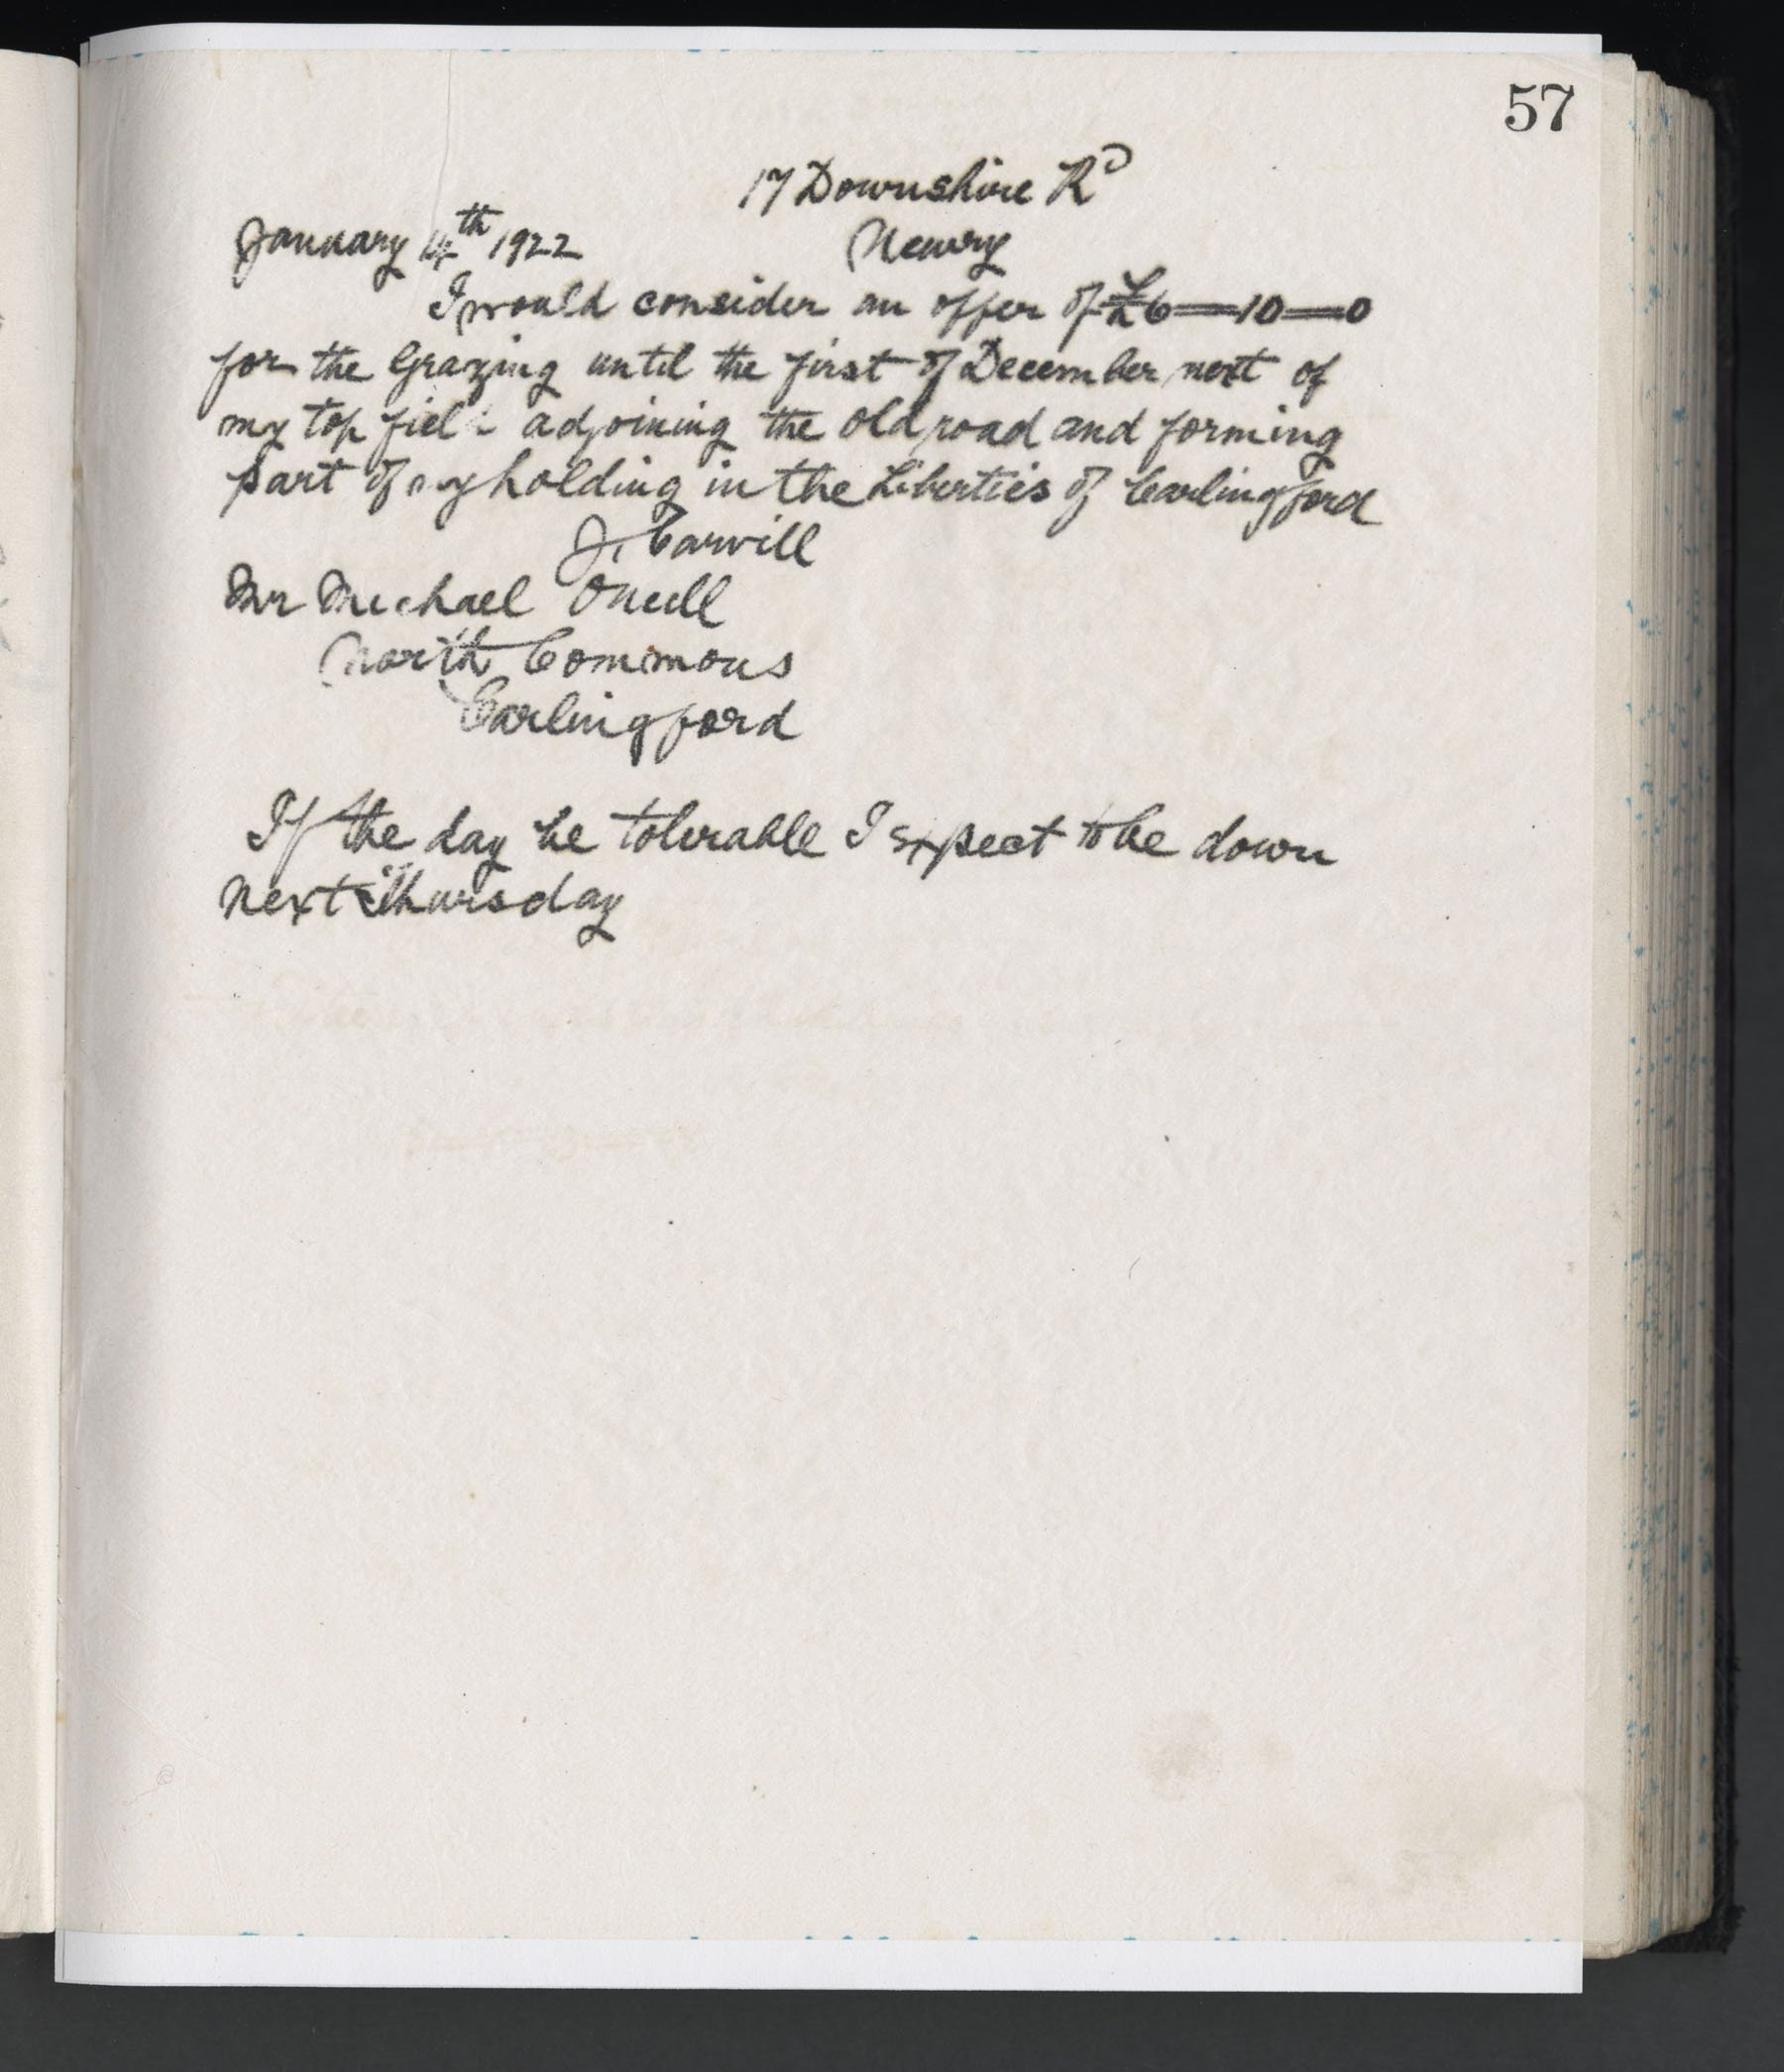 57
17 Downshire Rd
January 14th 1922 Newry
I would consider an offer of £6—10—0
for the Grazing until the first of December next of
my top field adjoining the old road and forming
part of my holding in the Liberties of Carlingford
J. Carvill
Mr Michael Oneill
North Commons
Carlingford
If the day be tolerable I expect to be down
next Thursday